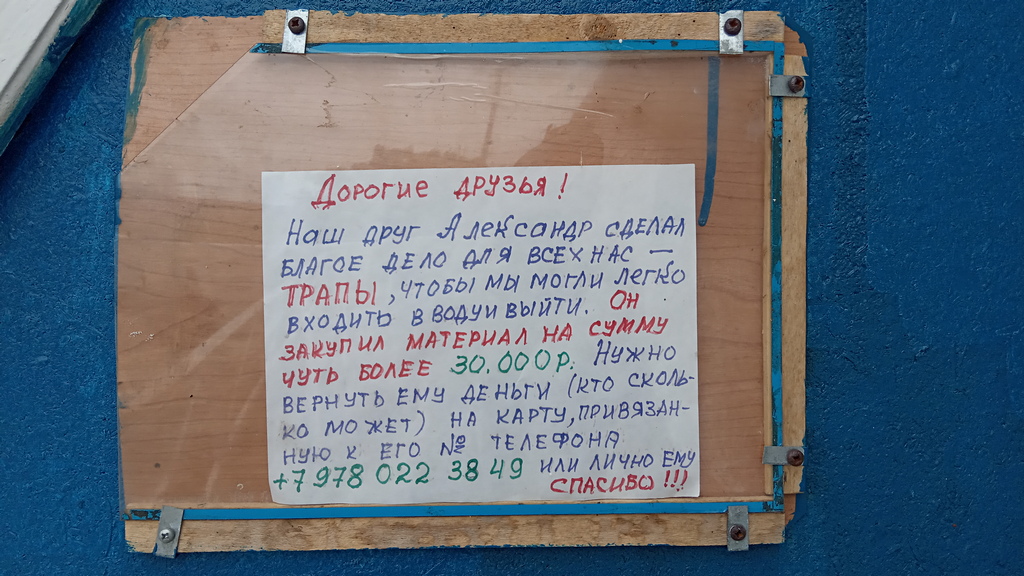 Дорогие друзья!
Наш друг Александр сделал
благое дело для всех нас —
ТРАПЫ, чтобы мы могли легко
входить в воду и выйти. Он
закупил материал на сумму
чуть более 30.000р. Нужно
вернуть ему деньги (кто сколь-
ко может) на карту, привязан-
ную к его № телефона
+7 978 022 38 49 или лично ему
Спасибо!!!